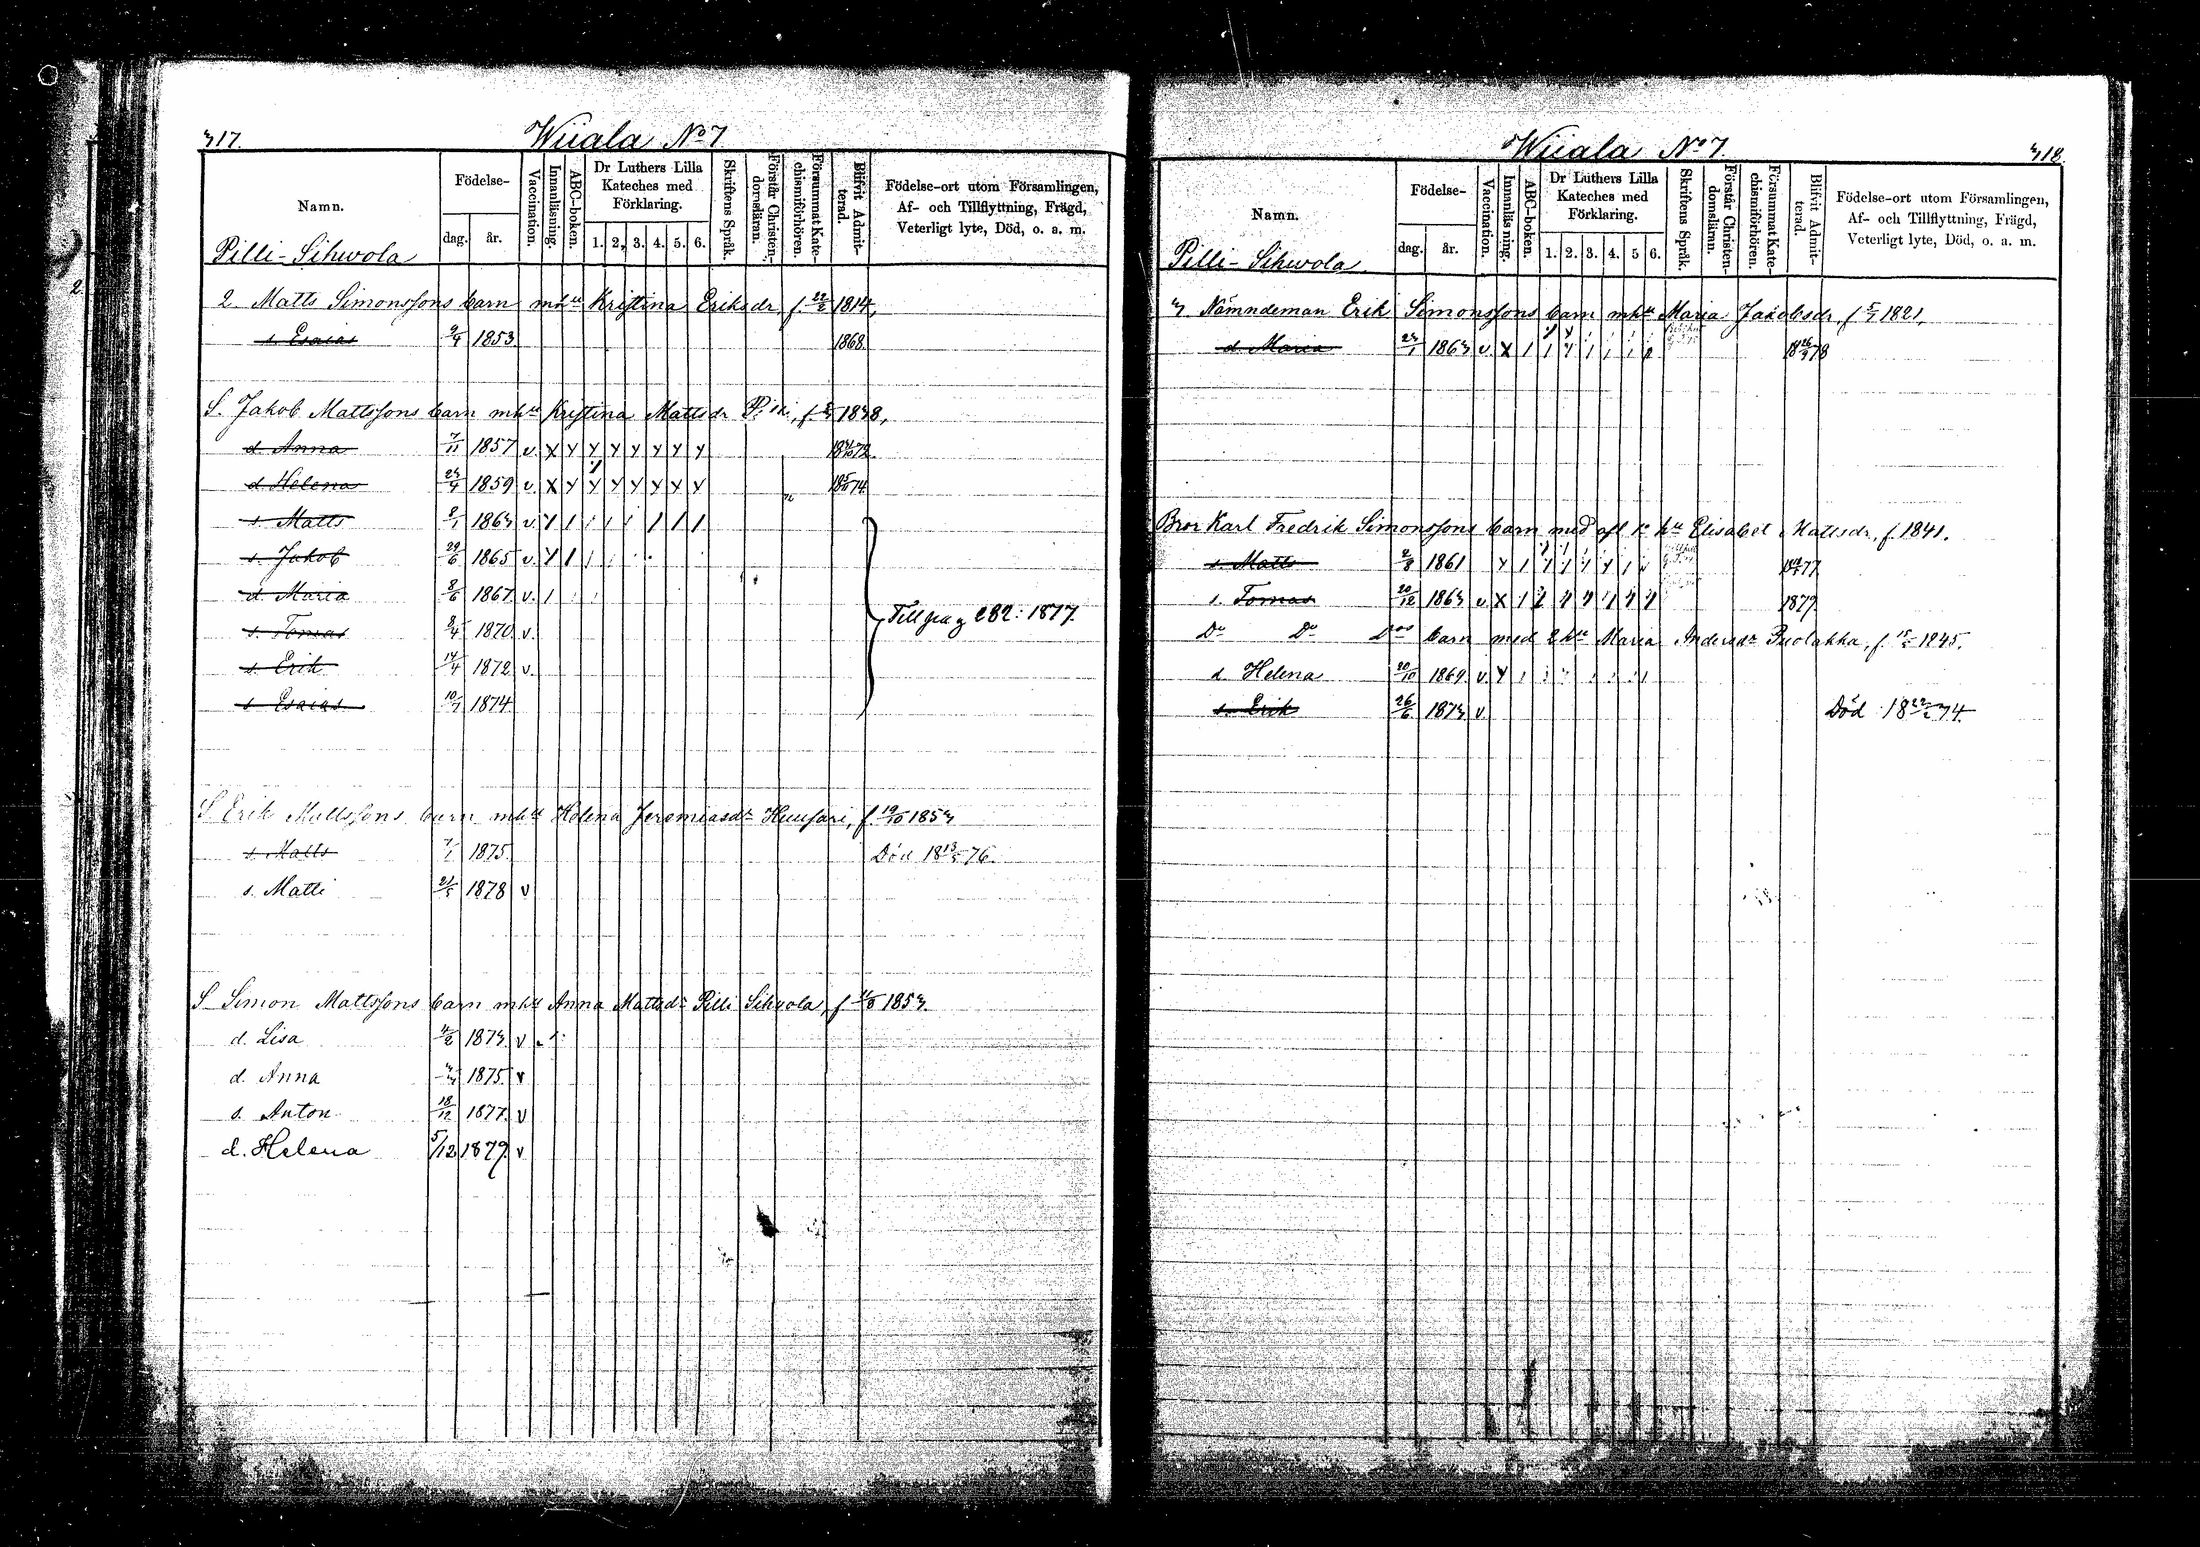 317.
Wiiala No 7
Namn.
Födelse-
dag.
år.
Vaccination.
Innanläsning.
ABC-boken.
Dr Luthers Lilla
Kateches med
Förklaring.
1. 2. 3. 4. 5. 6.
Skriftens Språk.
Förstår Christen-
domsläran.
Försummat Kate-
chismiförhören.
Blifvit Admit-
terad.
Födelse-ort utom Församlingen,
Af- och Tillflyttning, Frägd,
Veterligt lyte, Död, o. a. m.
Pilli-Sihvola
2.
2 Matts Simonssons barn mhu Kristina Eriksdr f. 1814,
s. Esaias 9/4 1853. 1868.
S. Jakob Mattssons barn mhu Kristina Mattsdr 1838,
d. Anna 7/11 1857 v. X Y Y Y Y Y Y Y
d. Helena 23/4 1859 v. X Y Y Y Y Y Y Y 18 74.
s. Matts 8/1 1863 v.
s. Jakob 29/6 1865 v.
d. Maria 8/6 1867. v.
s. Tomas 8/4 1870. v.
s. Erik 14/4 1872 v.
s. Esaias 10/7 1874
Till pag 282: 1877.
S. Erik Mattssons barn mhu Helena Jeremiasdr Huusari, f. 19/10 1853
s. Matts 7/1 1875. Död 18 76.
s. Matti 21/5 1878 v
S. Simon Mattssons barn mhu Anna Mattsdr Pilli Sihvola, f. 1853.
d. Lisa 1873. v
d. Anna 1875. v
s. Anton 18/12 1877. v
d. Helena 5/12 1879. v
Wiiala No 7.
318.
Namn.
Födelse-
dag.
år.
Vaccination.
Innanläsning.
ABC-boken.
Dr Luthers Lilla
Kateches med
Förklaring.
1. 2. 3. 4. 5 6.
Skriftens Språk.
Förstår Christen-
domsläran.
Försummat Kate-
chismiförhören.
Blifvit Admit-
terad.
Födelse-ort utom Församlingen,
Af- och Tillflyttning, Frägd,
Veterligt lyte, Död, o. a. m.
Pilli-Sihvola.
3 Nämndeman Erik Simonssons barn mhu Maria Jakobsdr, f 5/7 1821,
d. Maria 23/1 1863 v. X 18 26/9 78
Bror Karl Fredrik Simonssons barn med afl 1a hu Elisabet Mattsdr, f. 1841.
s. Matts 2/8 1861 77.
s. Tomas 20/12 1863 v. X 1879
Do Do Dos barn med 2 hu Maria Andersdr Puolakka, f. 1845.
d. Helena 20/10 1869. v. Y
s. Erik 26/6 1873 v. Död 18 74.